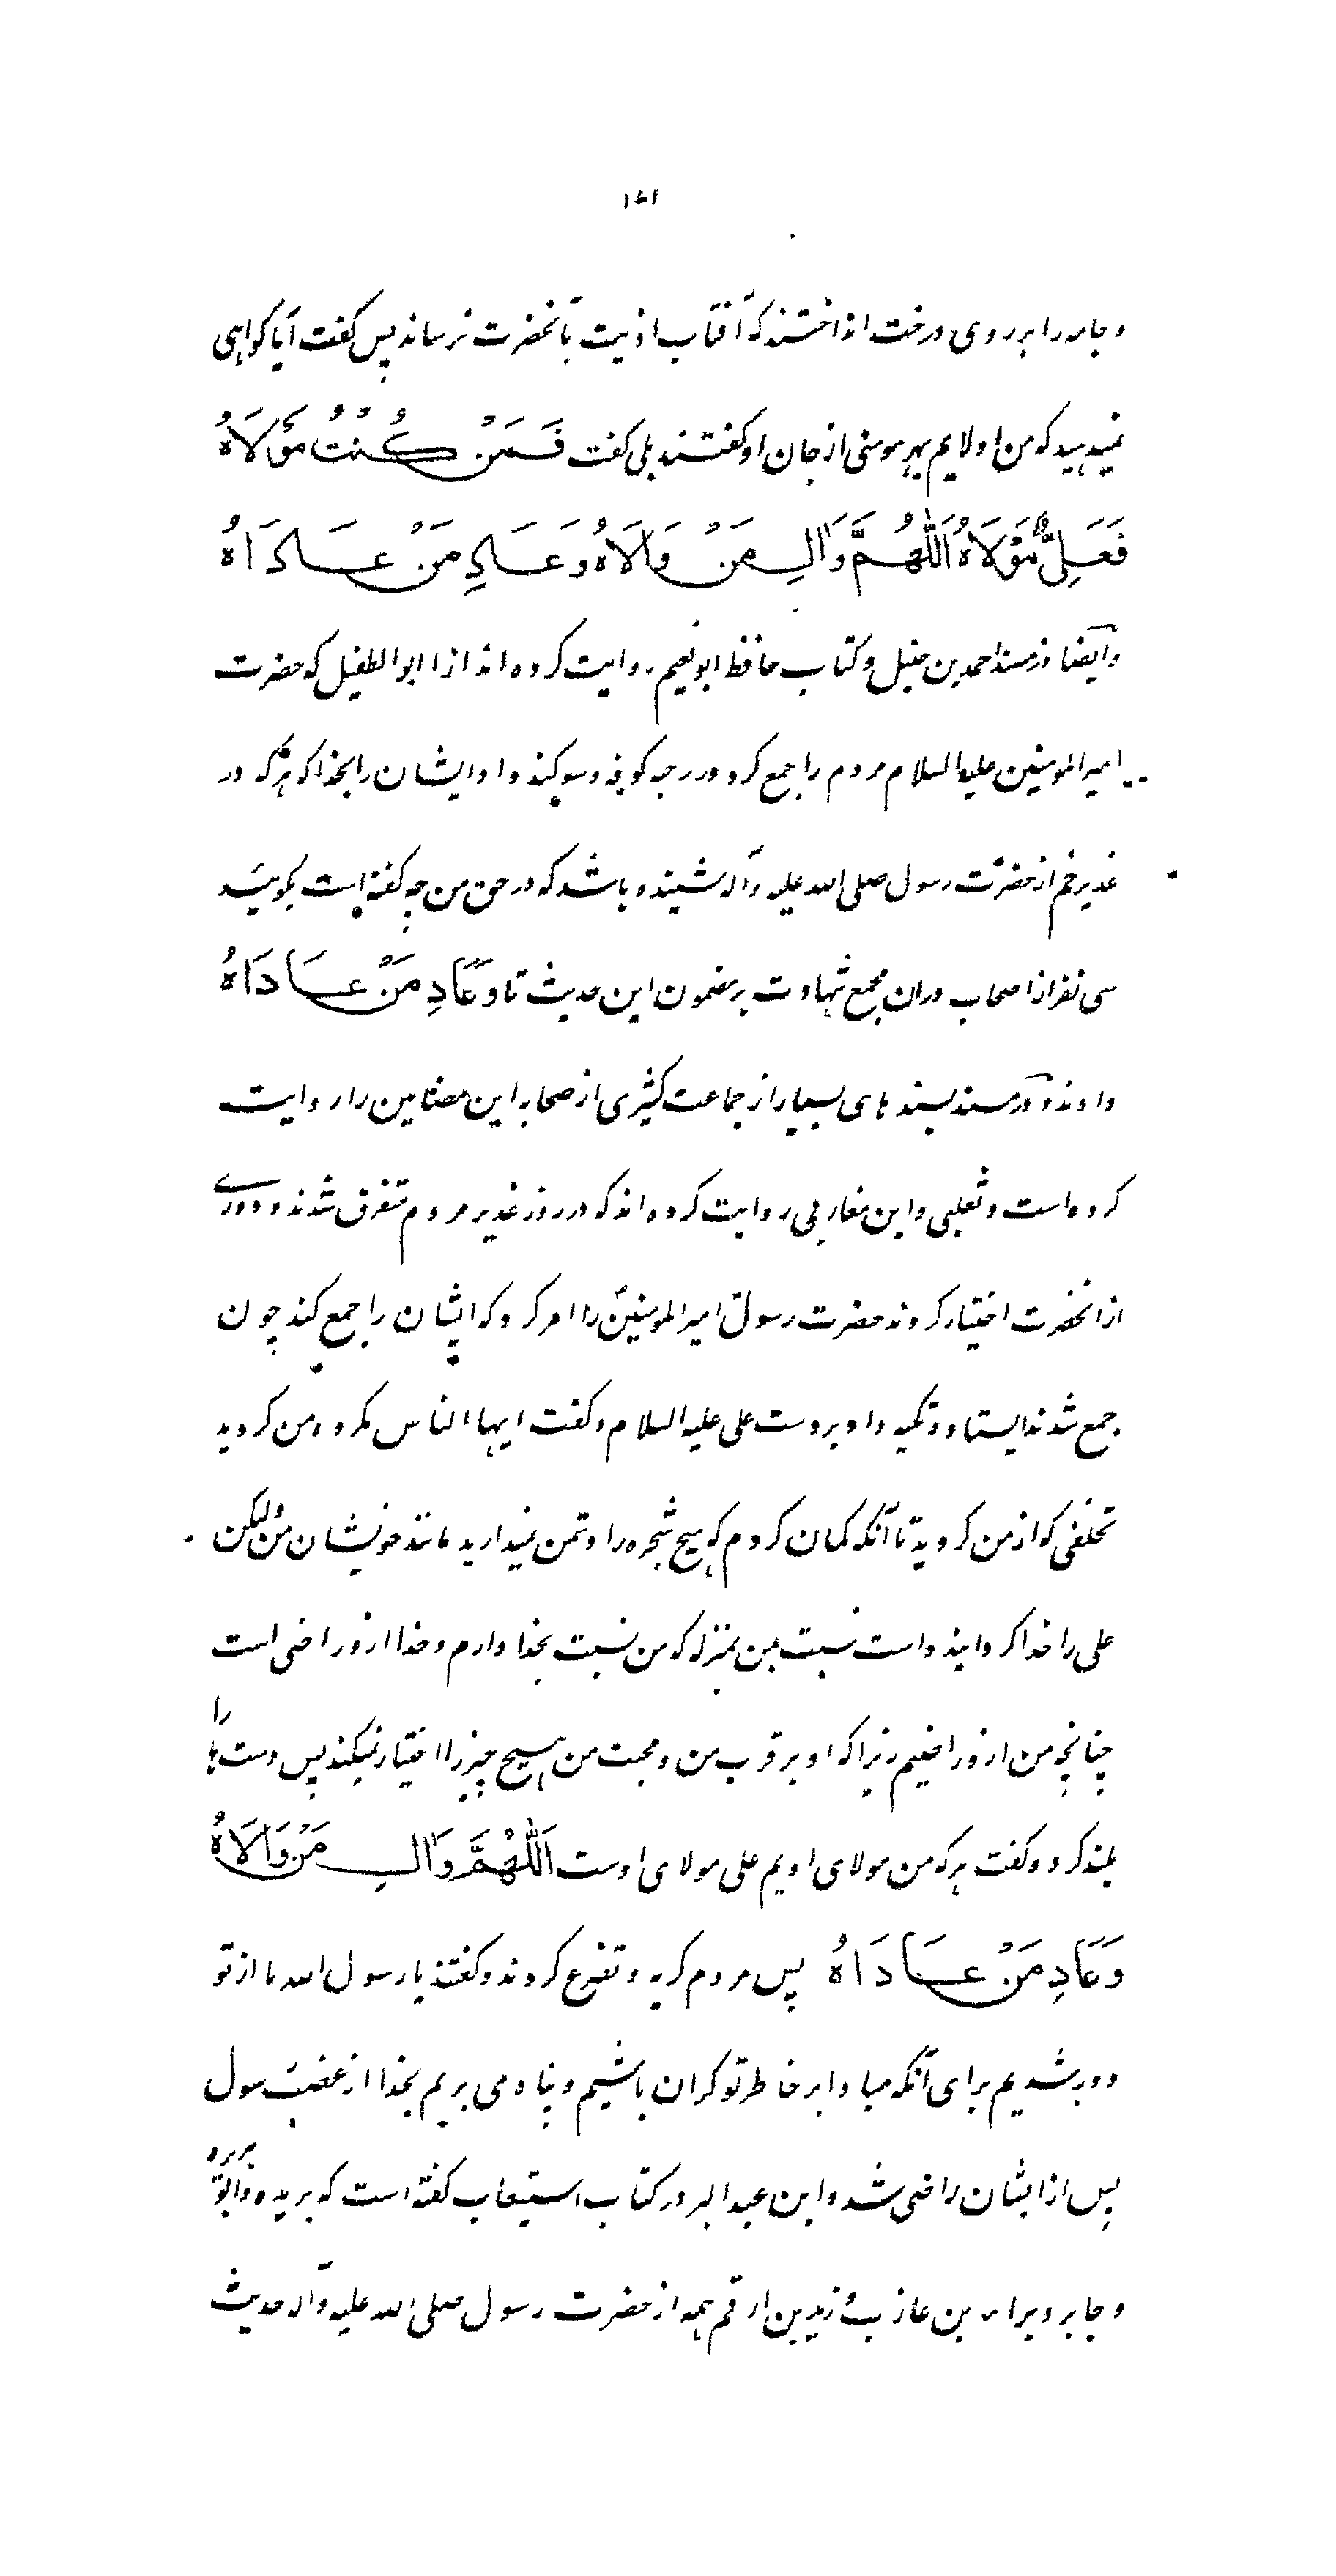 ۱۶۱
و جامه را بر روی درخت انداختند که آفتاب اذیت بآنحضرت نرساند پس گفت آیا گواهی
نمیدهید که من اولایم بهر مومنی از جان او گفتند بلی گفت فَمَنْ كُنْتُ مَوْلَاهُ
فَعَلِيٌّ مَوْلَاهُ اَللّٰهُمَّ وَالِ مَنْ وَالَاهُ وَعَادِ مَنْ عَادَاهُ
وایضا در مسند احمد بن حنبل و کتاب حافظ ابونعیم روایت کرده اند از ابو الطفیل که حضرت
امیر المومنین علیه السلام مردم را جمع کرد در رحبه کوفه و سوگند داد ایشان را بخدا که هرکه در
غدیر خم از حضرت رسول صلی الله علیه وآله شنیده باشد که در حق من چه گفته است بگوئید
سی نفر از اصحاب دران مجمع شهادت بر مضمون این حدیث تا وَعَادِ مَنْ عَادَاهُ
دادند و در مسند بسندهای بسیار از جماعت کثیری از صحابه این مضامین را روایت
کرده است و ثعلبی و ابن مغازلی روایت کرده اند که در روز غدیر مردم متفرق شدند و دوری
از آنحضرت اختیار کردند حضرت رسولؐ امیر المومنینؑ را امر کرد که ایشان را جمع کند چون
جمع شدند ایستاد و تکیه داد بر دست علی علیه السلام و گفت ایها الناس مکروه من کردید
تخلفی که از من کردید تا آنکه گمان کردم که هیچ شجره را دشمن نمیدارید مانند خویشان من و لیکن
علی را خدا گردانیده است نسبت بمن بمنزله که من نسبت بخدا دارم و خدا ازو راضی است
چنانچه من ازو راضیم زیرا که او بر قرب من و محبت من هیچ چیز را اختیار نمیکند پس دستها را
بلند کرد و گفت هرکه من مولای اویم علی مولای اوست اَللّٰهُمَّ وَالِ مَنْ وَالَاهُ
وَعَادِ مَنْ عَادَاهُ پس مردم گریه و تضرع کردند و گفتند یا رسول الله ما از تو
دور شدیم برای آنکه مبادا بر خاطر تو گران باشیم و پناه می بریم بخدا از غضب رسول
پس از ایشان راضی شد و ابن عبد البر در کتاب استیعاب گفته است که بریده و ابو هریره
و جابر و براء بن عازب و زید بن ارقم همه از حضرت رسول صلی الله علیه وآله حدیث